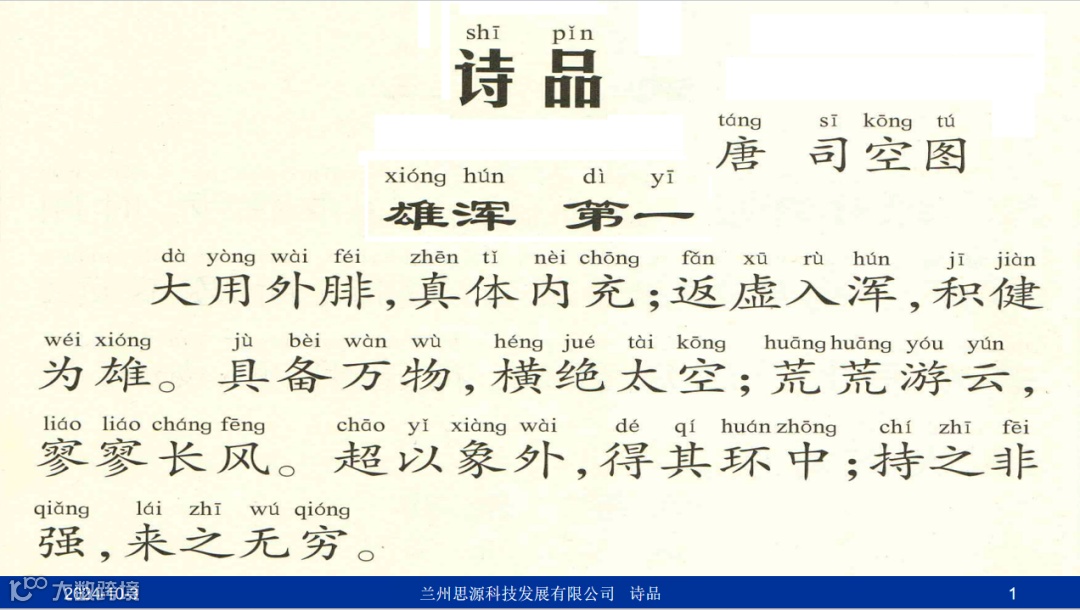 shī pǐn
诗 品
táng sī kōng tú
唐 司空图
xióng hún dì yī
雄浑 第一
dà yòng wài féi zhēn tǐ nèi chōng fǎn xū rù hún jī jiàn
大用外腓,真体内充;返虚入浑,积健
wéi xióng jù bèi wàn wù héng jué tài kōng huāng huāng yóu yún
为雄。具备万物,横绝太空;荒荒游云,
liáo liáo cháng fēng chāo yǐ xiàng wài dé qí huán zhōng chí zhī fēi
寥寥长风。超以象外,得其环中;持之非
qiǎng lái zhī wú qióng
强,来之无穷。
大数跨境
兰州思源科技发展有限公司 诗品 1